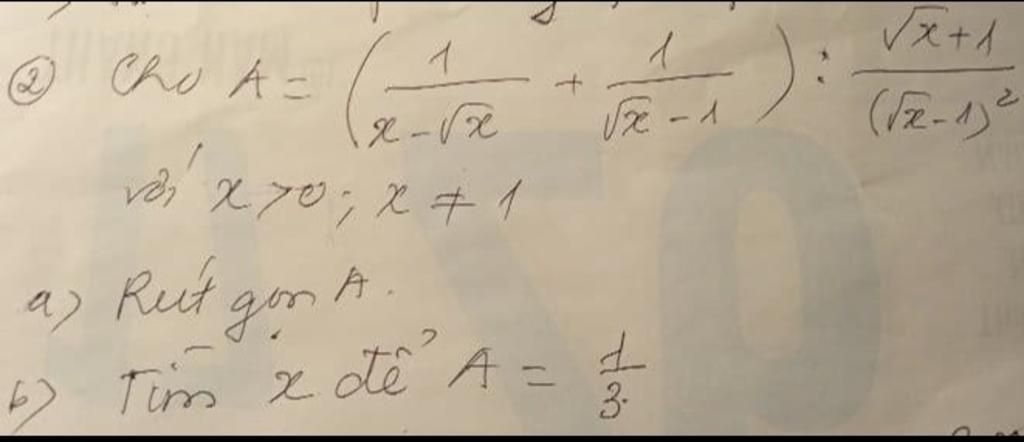 ② Cho A = ( 1/(x-√x) + 1/(√x-1) ) : (√x+1)/(√x-1)²
với x > 0 ; x ≠ 1
a) Rút gọn A.
b) Tìm x để A = 1/3